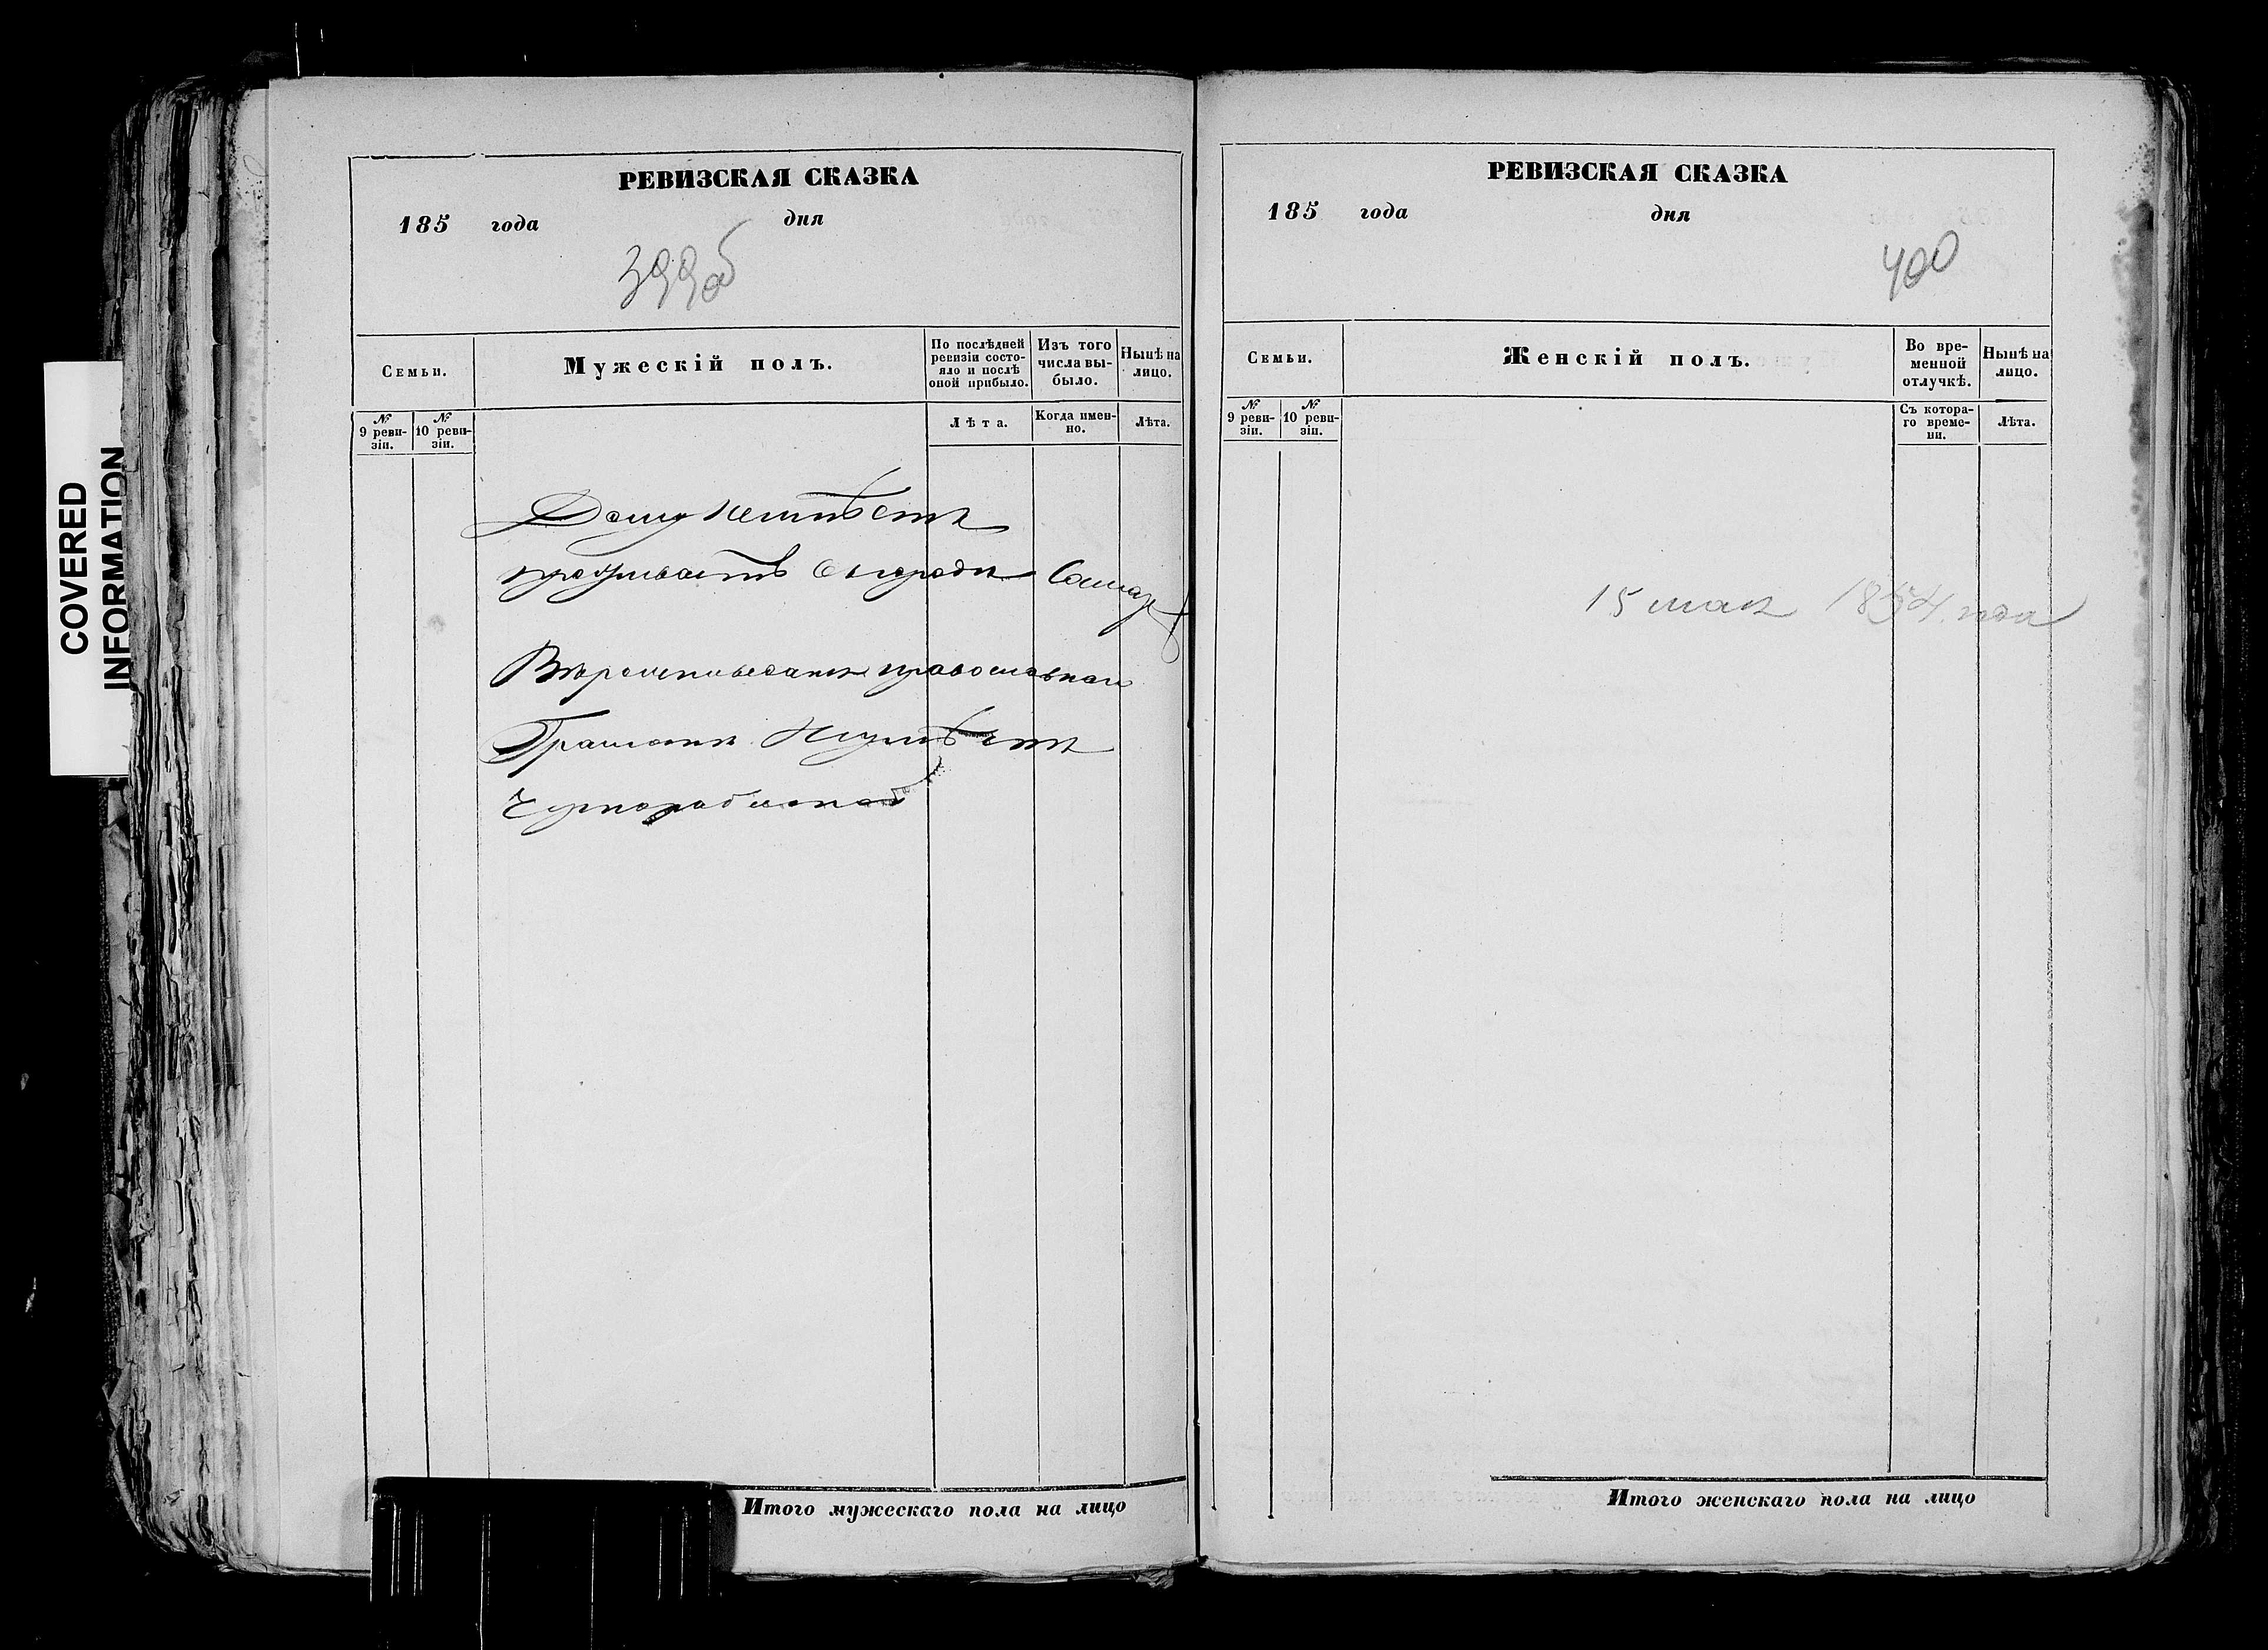 COVERED
INFORMATION
РЕВИЗСКАЯ СКАЗКА
185 года дня
399об
Семьи.
Мужескій полъ.
По послѣдней ревизіи состояло и послѣ оной прибыло.
Изъ того числа выбыло.
Нынѣ на лицо.
№ 9 ревизіи.
№ 10 ревизіи.
Лѣта.
Когда именно.
Лѣта.
Дому неимѣетъ
проживаетъ въ городе Самар
Вероисповеданія православнаго
Грамоте неумѣетъ
Чернорабочей
Итого мужескаго пола на лицо
РЕВИЗСКАЯ СКАЗКА
185 года дня
400
Семьи.
Женскій полъ.
Во временной отлучкѣ.
Нынѣ на лицо.
№ 9 ревизіи.
№ 10 ревизіи.
Съ котораго времени.
Лѣта.
15 мая 1854 года
Итого женскаго пола на лицо